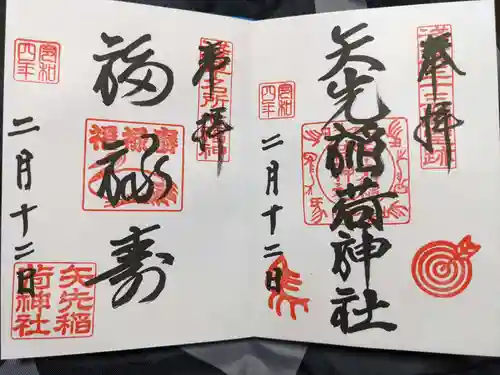 奉拝
矢先稲荷神社
二月十二日
令和四年
奉拝
福禄寿
二月十二日
令和四年
矢先稲荷神社